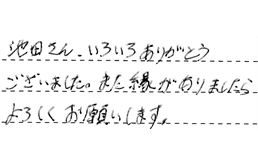 池田さん、いろいろありがとう
ございました。また縁がありましたら
よろしくお願いします。